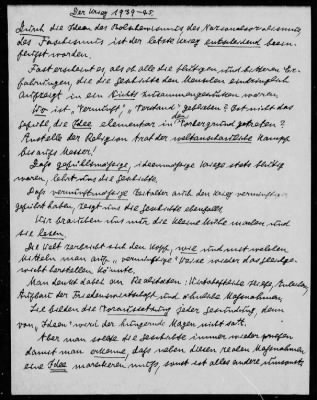 Der Krieg 1939-45.
Durch die Ideen des Bolschewismus, des Nazionalsozialismus
des Faschismus ist der letzte Krieg entscheidend beein-
flusst worden.
Fast erscheint es, als ob alle die blutigen und bitteren Er-
fahrungen, die die Geschichte den Menschen eindringlich
aufzeigt in ein Nichts zusammengesunken wären
Wo ist "Vernunft", "Verstand" geblieben? Ist nicht das
Gefühl, die Idee elementar in den Vordergrund getreten?
Anstelle der Religion trat der weltanschauliche Kampf
bis aufs Messer!
Dass gefühlsmässige, ideenmässige Kriege stets blutig
waren, lehrt uns die Geschichte.
Dass vernunftmässige Zeitalter auch den Krieg vernünftiger
geführt haben, zeigt uns die Geschichte ebenfalls.
Wir brauchen uns nur die kleine Mühe machen, und
sie lesen.
Die Welt zerbricht sich den Kopf, wie und mit welchen
Mitteln man auf "vernünftige" Weise wieder das Gleichge-
wicht herstellen könnte.
Man denkt dabei an Realitäten: Wirtschaftliche Hilfe, Anleihen,
Aufbau der Friedenswirtschaft und ähnliche Massnahmen.
Sie bilden die Voraussetzung jeder Gesundung, denn
von "Ideen" wird der hungernde Magen nicht satt.
Aber man sollte die Geschichte immer wieder prüfen
damit man erkenne, dass neben diesen realen Massnahmen
eine Idee marschieren muss, sonst ist alles andere umsonst.